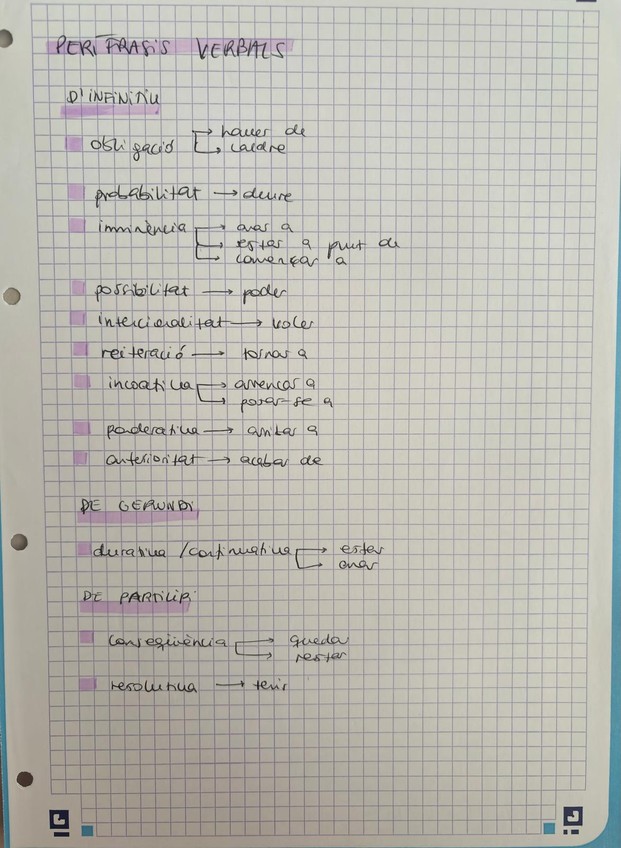 PERÍFRASIS VERBALS
D'INFINITIU
obligació → haver de
→ caldre
probabilitat → deure
imminència → anar a
→ estar a punt de
→ començar a
possibilitat → poder
intencionalitat → voler
reiteració → tornar a
incoativa → arrencar a
→ posar-se a
ponderativa → arribar a
anterioritat → acabar de
DE GERUNDI
durativa / continuativa → estar
→ anar
DE PARTICIPI
conseqüència → quedar
→ restar
resolutiva → tenir